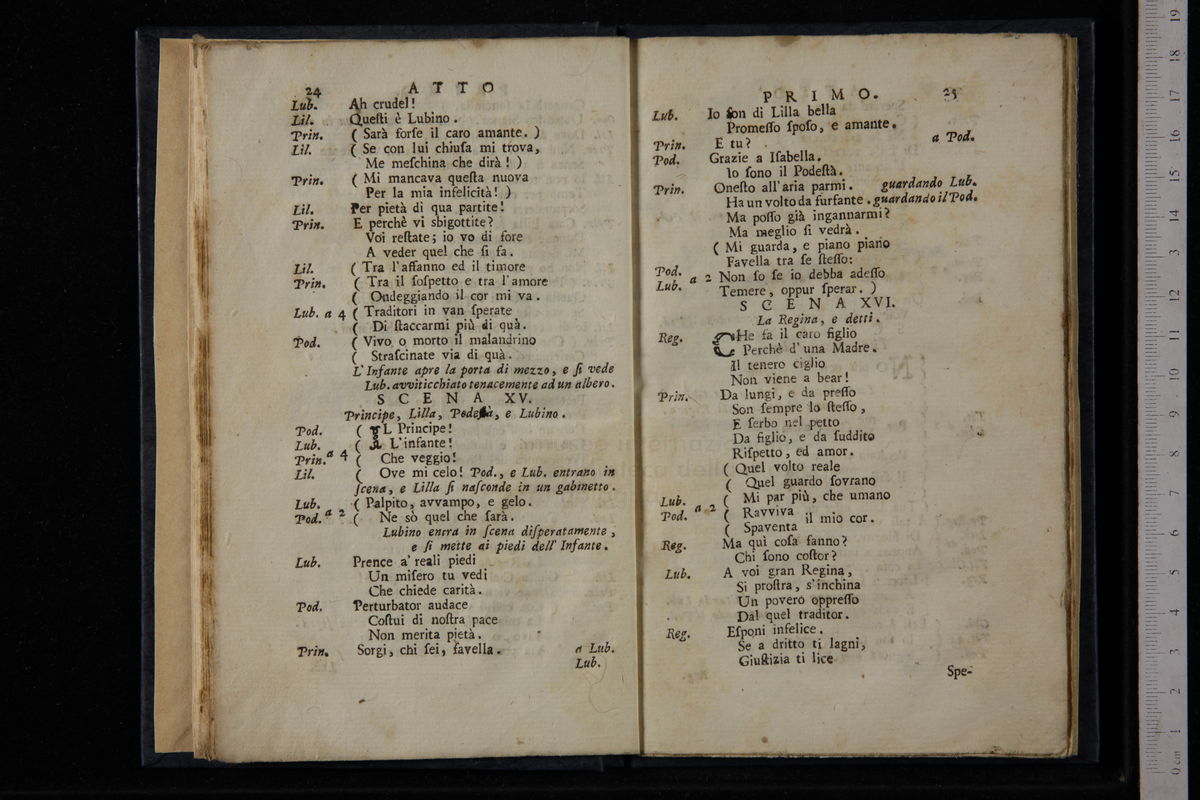 24 ATTO
Lub. Ah crudel!
Lil. Queſti è Lubino.
Prin. ( Sarà forſe il caro amante. )
Lil. ( Se con lui chiuſa mi trova,
Me meſchina che dirà! )
Prin. ( Mi mancava queſta nuova
Per la mia infelicità! )
Lil. Per pietà di qua partite!
Prin. E perchè vi sbigottite?
Voi reſtate; io vo di fore
A veder quel che ſi fa.
Lil. ( Tra l'affanno ed il timore
Prin. ( Tra il ſoſpetto e tra l'amore
( Ondeggiando il cor mi va.
Lub. a 4 ( Traditori in van ſperate
( Di ſtaccarmi più di quà.
Pod. ( Vivo o morto il malandrino
( Straſcinate via di quà.
L'Infante apre la porta di mezzo, e ſi vede
Lub. avviticchiato tenacemente ad un albero.
SCENA XV.
Principe, Lilla, Podeſtà, e Lubino.
Pod. ( IL Principe!
Lub. ( L'infante!
Prin. a 4 ( Che veggio!
Lil. ( Ove mi celo! Pod., e Lub. entrano in
ſcena, e Lilla ſi naſconde in un gabinetto.
Lub. ( Palpito, avvampo, e gelo.
Pod. a 2 ( Ne sò quel che ſarà.
Lubino entra in ſcena diſperatamente,
e ſi mette ai piedi dell' Infante.
Lub. Prence a' reali piedi
Un miſero tu vedi
Che chiede carità.
Pod. Perturbator audace
Coſtui di noſtra pace
Non merita pietà.
Prin. Sorgi, chi ſei, favella. a Lub.
Lub.
PRIMO. 25
Lub. Io ſon di Lilla bella
Promeſſo ſpoſo, e amante.
Prin. E tu? a Pod.
Pod. Grazie a Iſabella.
Io ſono il Podeſtà.
Prin. Oneſto all'aria parmi. guardando Lub.
Ha un volto da furfante. guardando il Pod.
Ma poſſo già ingannarmi?
Ma meglio ſi vedrà.
( Mi guarda, e piano piano
Favella tra ſe ſteſſo:
Pod. Lub. a 2 Non ſo ſe io debba adeſſo
Temere, oppur ſperar. )
SCENA XVI.
La Regina, e detti.
Reg. CHe fa il caro figlio
Perchè d'una Madre.
Il tenero ciglio
Non viene a bear!
Prin. Da lungi, e da preſſo
Son ſempre lo ſteſſo,
E ſerbo nel petto
Da figlio, e da ſuddito
Riſpetto, ed amor.
( Quel volto reale
( Quel guardo ſovrano
Lub. ( Mi par più, che umano
Pod. a 2 ( Ravviva il mio cor.
( Spaventa
Reg. Ma quì coſa fanno?
Chi ſono coſtor?
Lub. A voi gran Regina,
Si proſtra, s'inchina
Un povero oppreſſo
Dal quel traditor.
Reg. Eſponi infelice.
Se a dritto ti lagni,
Giuſtizia ti lice
Spe-